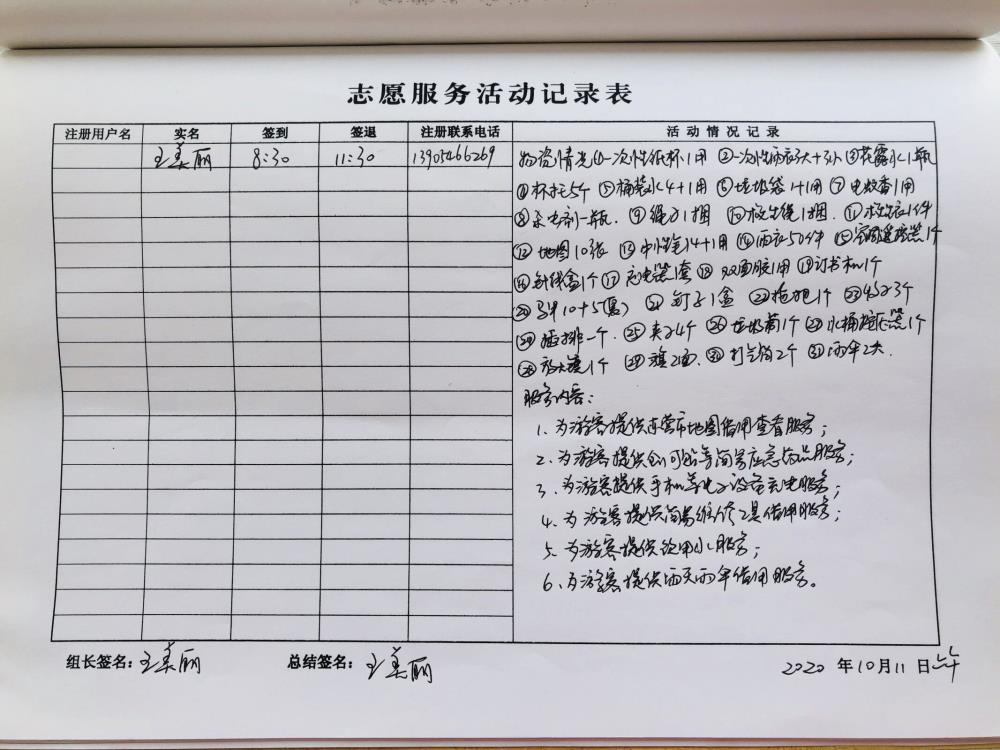 志愿服务活动记录表
注册用户名 实名 签到 签退 注册联系电话 活动情况记录
王美丽 8:30 11:30 13905466269 物资情况①一次性纸杯1用 ②一次性雨衣3大+3小 ③花露水1瓶
④杯托5个 ⑤桶装水4+1用 ⑥垃圾袋1+1用 ⑦电蚊香1用
⑧杀虫剂一瓶. ⑨绳子1捆 ⑩救生绳1捆. ⑪救生衣1件
⑫地图10张 ⑬中性笔14+1用 ⑭雨衣50件 ⑮空调遥控器1个
⑯针线盒1个 ⑰充电器1套 ⑱双面胶1用 ⑲订书机1个
⑳ 10+5 ㉑钉子1盒 ㉒拖把1个 ㉓ 3个
㉔插排一个. ㉕夹子4个 ㉖垃圾筒1个 ㉗水桶 器1个
㉘放大镜1个 ㉙旗2面. ㉚打气筒2个 ㉛雨伞2夹.
服务内容:
1、为游客提供东营市地图借用查看服务;
2、为游客提供创可贴等简易应急药品服务;
3、为游客提供手机等电子设备充电服务;
4、为游客提供简易维修工具借用服务;
5、为游客提供饮用水服务;
6、为游客提供雨天雨伞借用服务。
组长签名:王美丽 总结签名:王美丽 2020 年10月11日